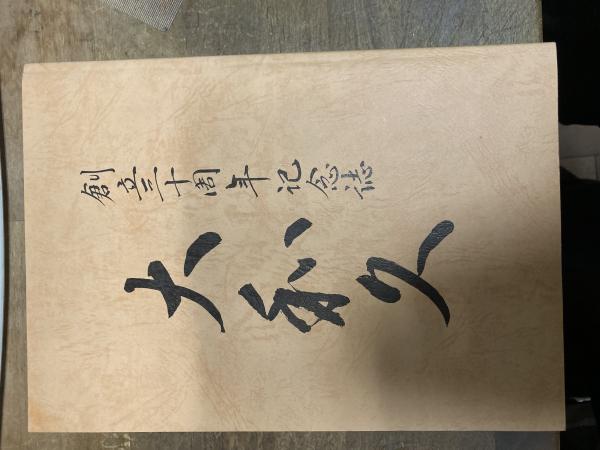 創立三十周年記念誌
大